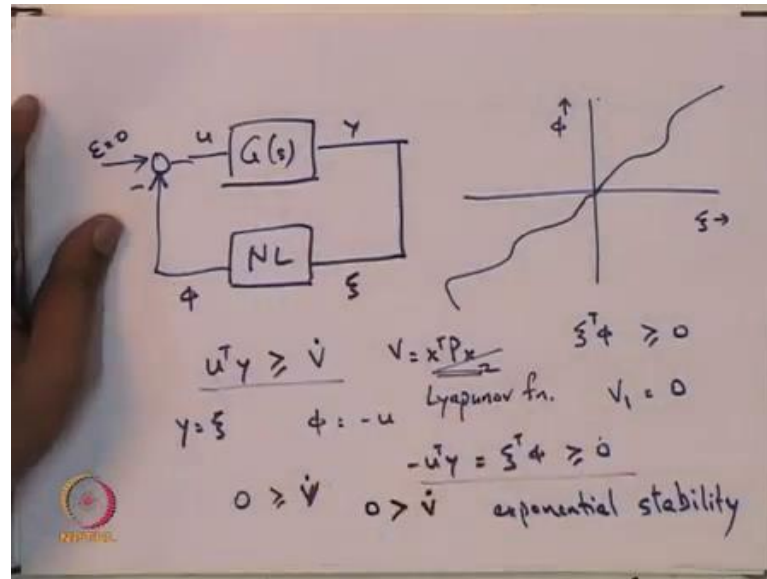 ε=0
u
G(s)
y
-
NL
φ
ξ
φ↑
ξ→
uᵀy ≥ V̇
V = xᵀPx
2
ξᵀφ ≥ 0
Lyapunov fn.
V₁ = 0
y = ξ
φ = -u
-uᵀy = ξᵀφ ≥ 0
0 ≥ V̇
0 > V̇
exponential stability
NPTEL